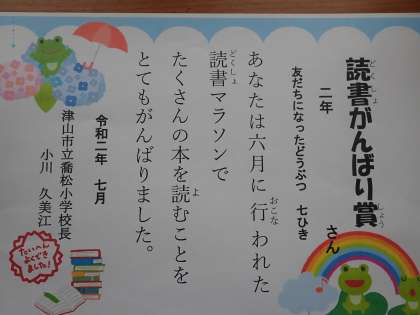 読書がんばり賞
二年
さん
友だちになったどうぶつ 七ひき
あなたは六月に行われた
読書マラソンで
たくさんの本を読むことを
とてもがんばりました。
令和二年 七月
津山市立喬松小学校長
小川 久美江
たいへん
よくでき
ました!